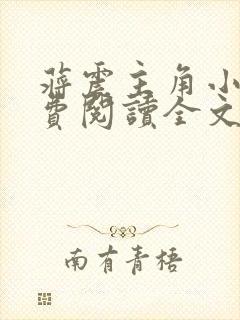 蔣震主角小
費閱讀全文
南有青梧